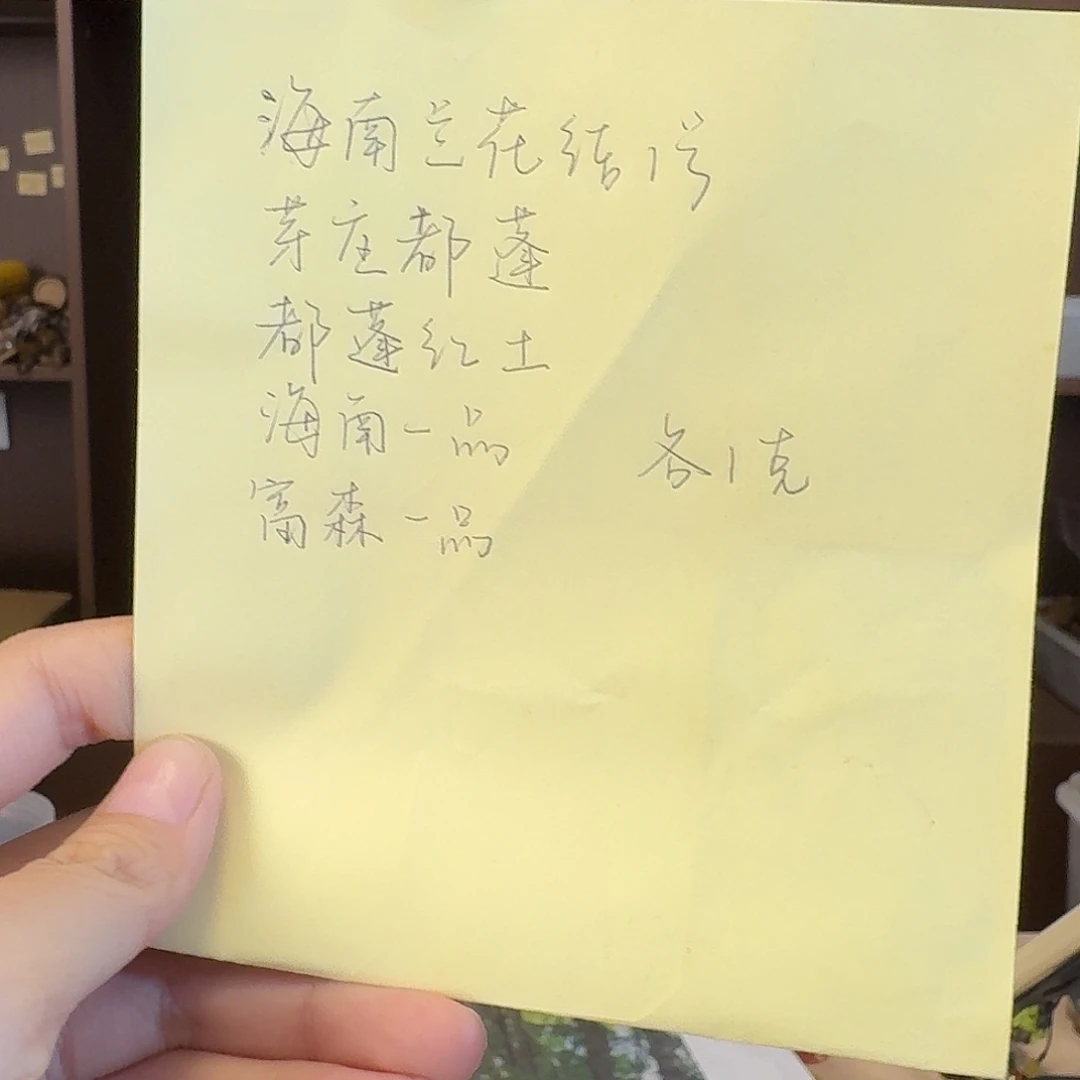 海南兰花结1号
芽庄都蓬
都蓬红土
海南一品
各1克
富森一品